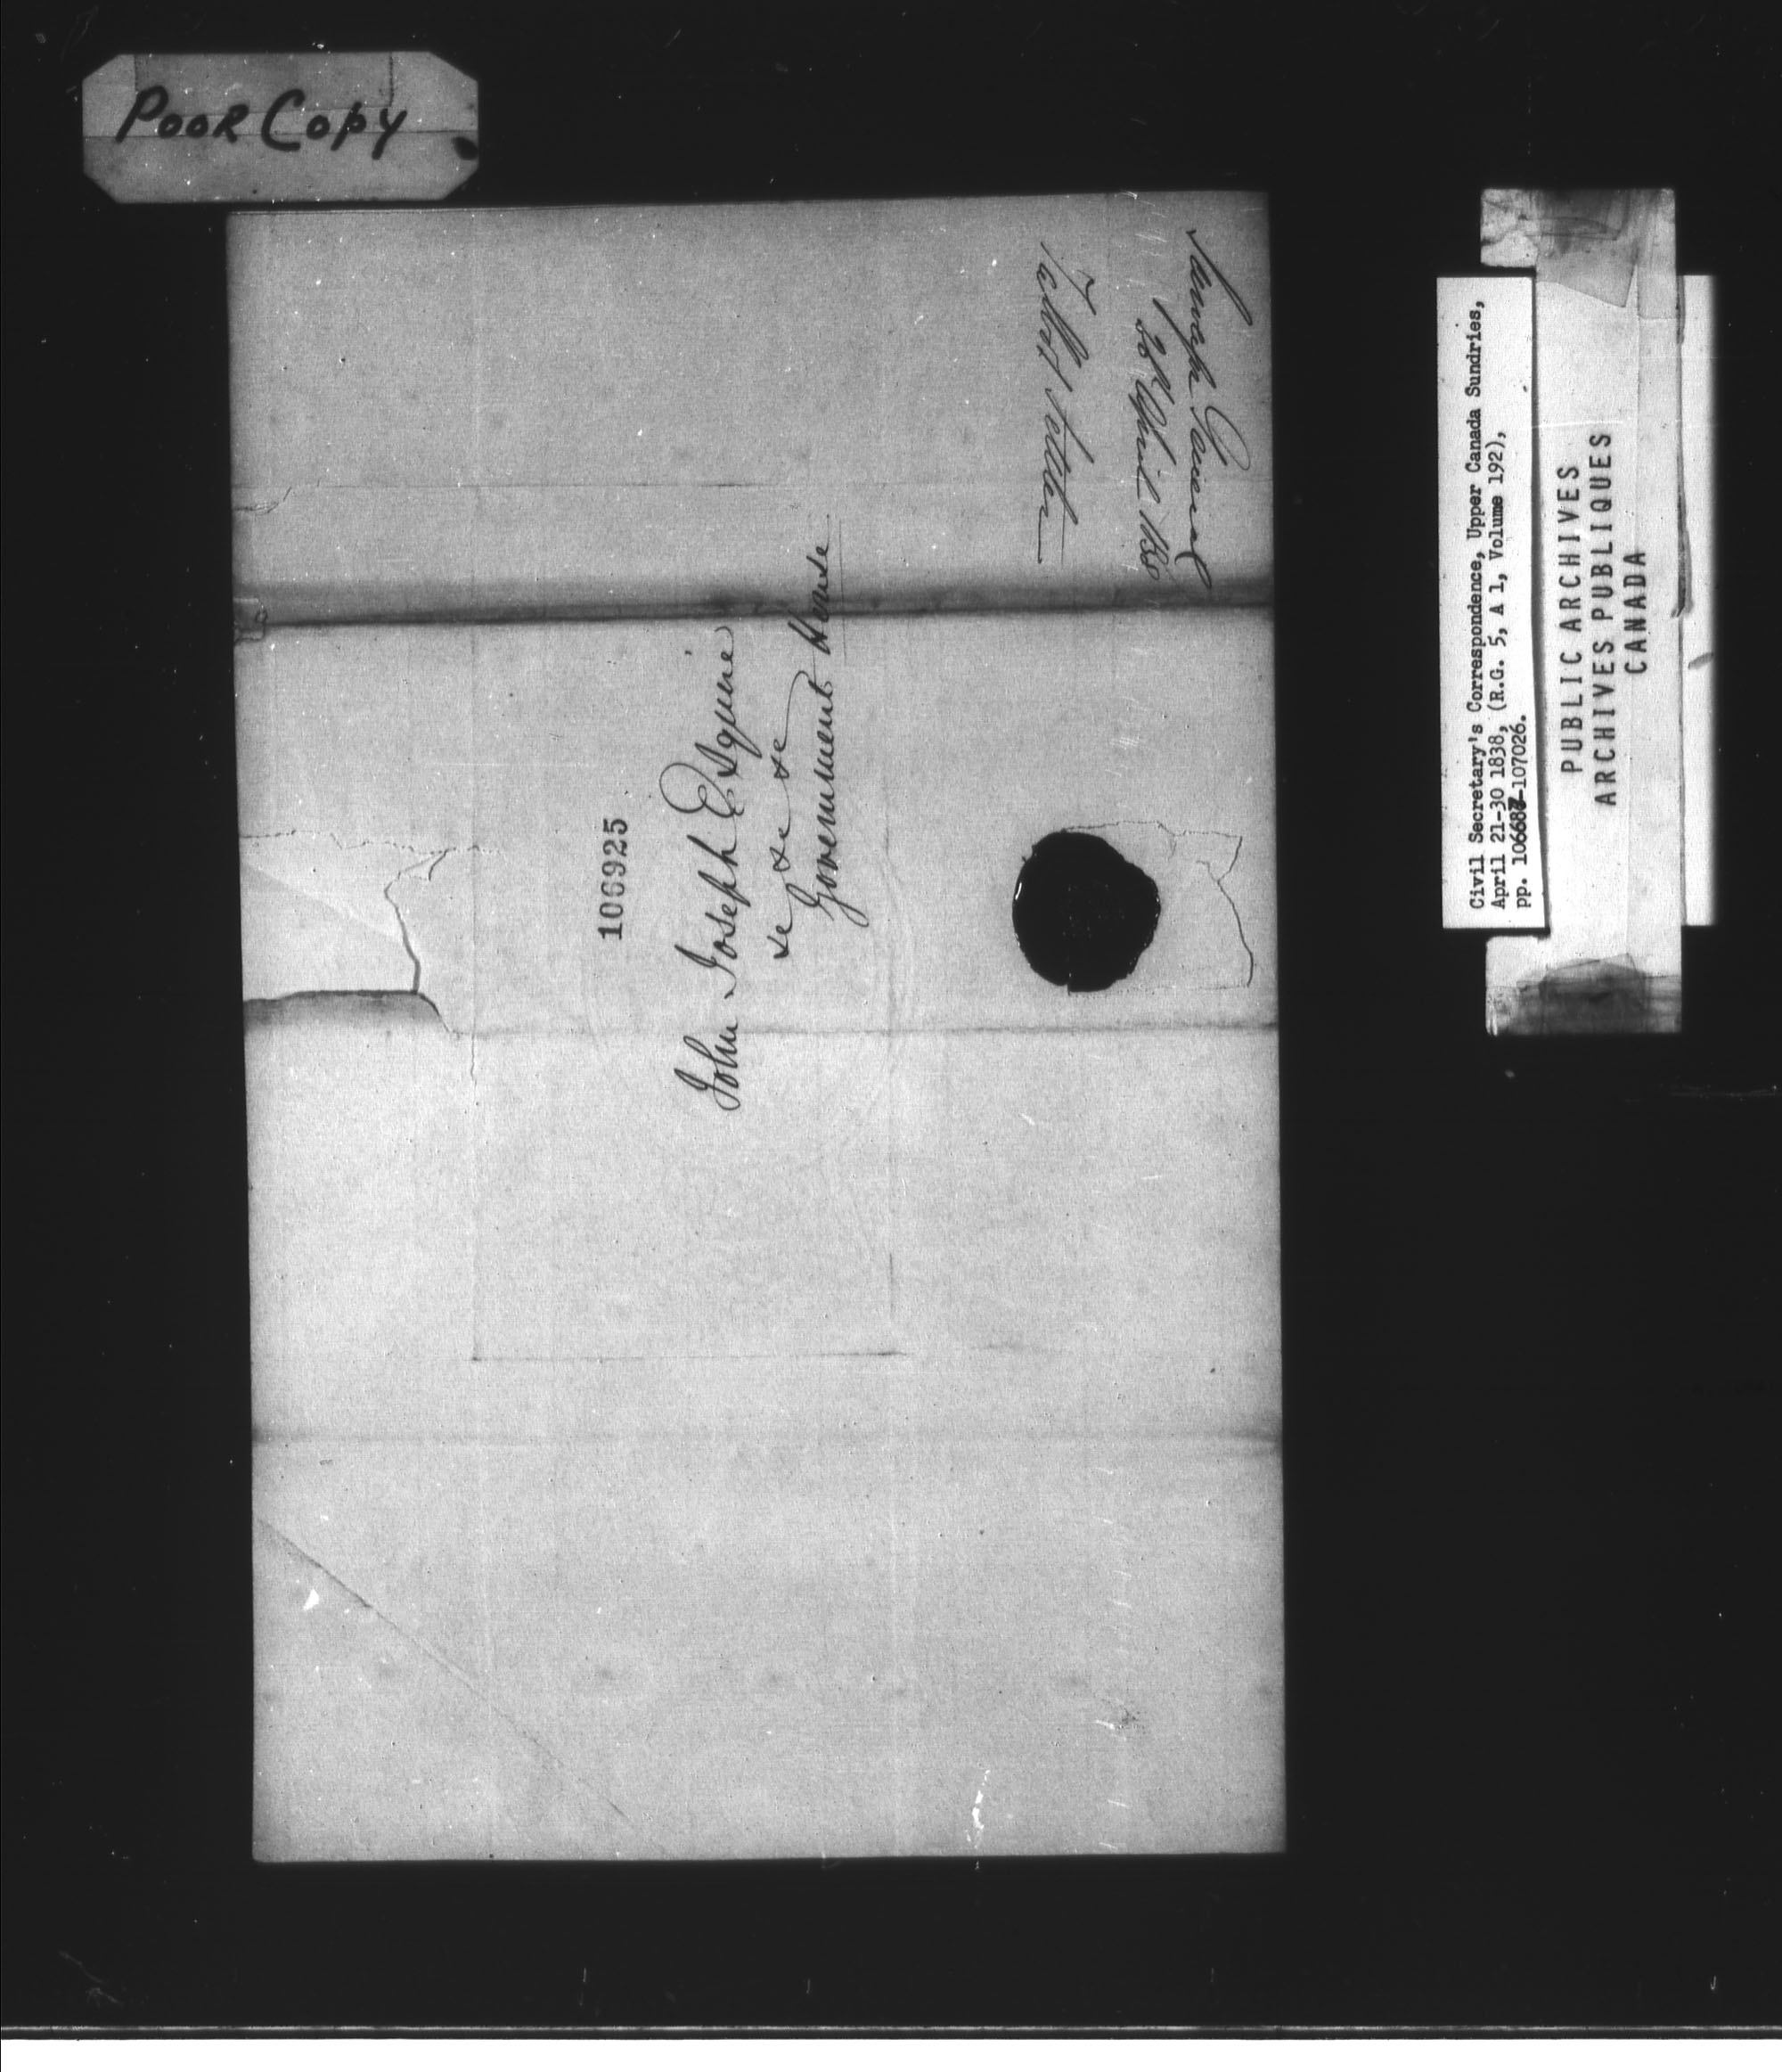 Poor Copy
Surveyor General
26 April 1838
Talbot settlers
106925
John Joseph Esquire
&c &c &c
Government House
Civil Secretary's Correspondence, Upper Canada Sundries,
April 21-30 1838, (R.G. 5, A 1, Volume 192),
pp. 106687-107026.
PUBLIC ARCHIVES
ARCHIVES PUBLIQUES
CANADA